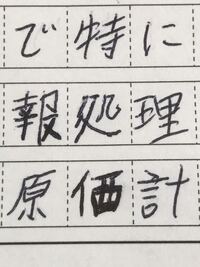 で特に
報処理
原価計